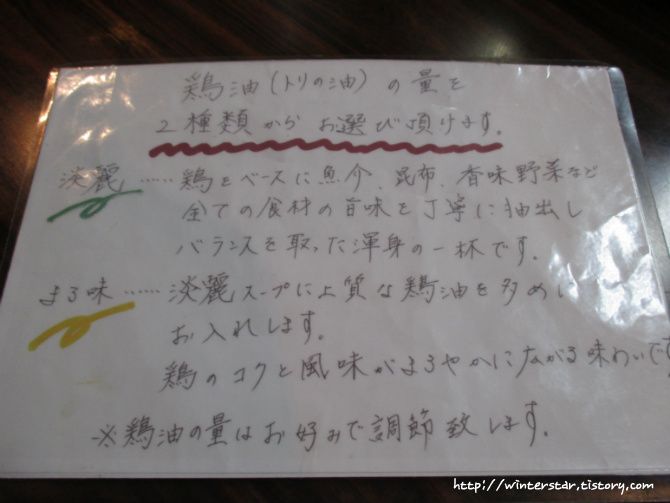 鶏油(トリの油)の量を
2種類からお選び頂けます。
淡麗……鶏をベースに魚介、昆布、香味野菜など
全ての食材の旨味を丁寧に抽出し
バランスを取った渾身の一杯です。
まろ味……淡麗スープに上質な鶏油を多めに
お入れします。
鶏のコクと風味がまろやかに広がる味わいです
※鶏油の量はお好みで調節致します。
http://winterstar.tistory.com